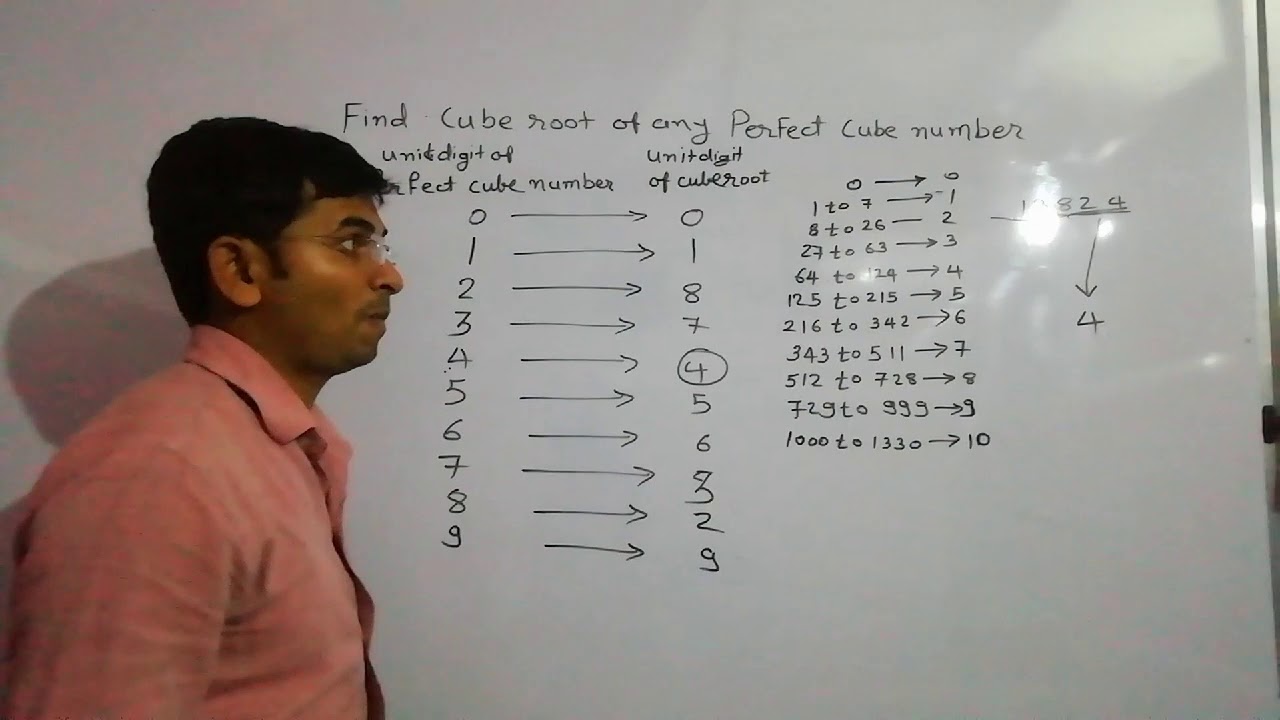 Find Cube root of any Perfect Cube number
unit digit of
fect cube number
unit digit
of cuberoot
0 → 0
1 → 1
2 → 8
3 → 7
4 → 4
5 → 5
6 → 6
7 → 3
8 → 2
9 → 9
0 → 0
1 to 7 → 1
8 to 26 — 2
27 to 63 → 3
64 to 124 → 4
125 to 215 → 5
216 to 342 → 6
343 to 511 → 7
512 to 728 → 8
729 to 999 → 9
1000 to 1330 → 10
824
4